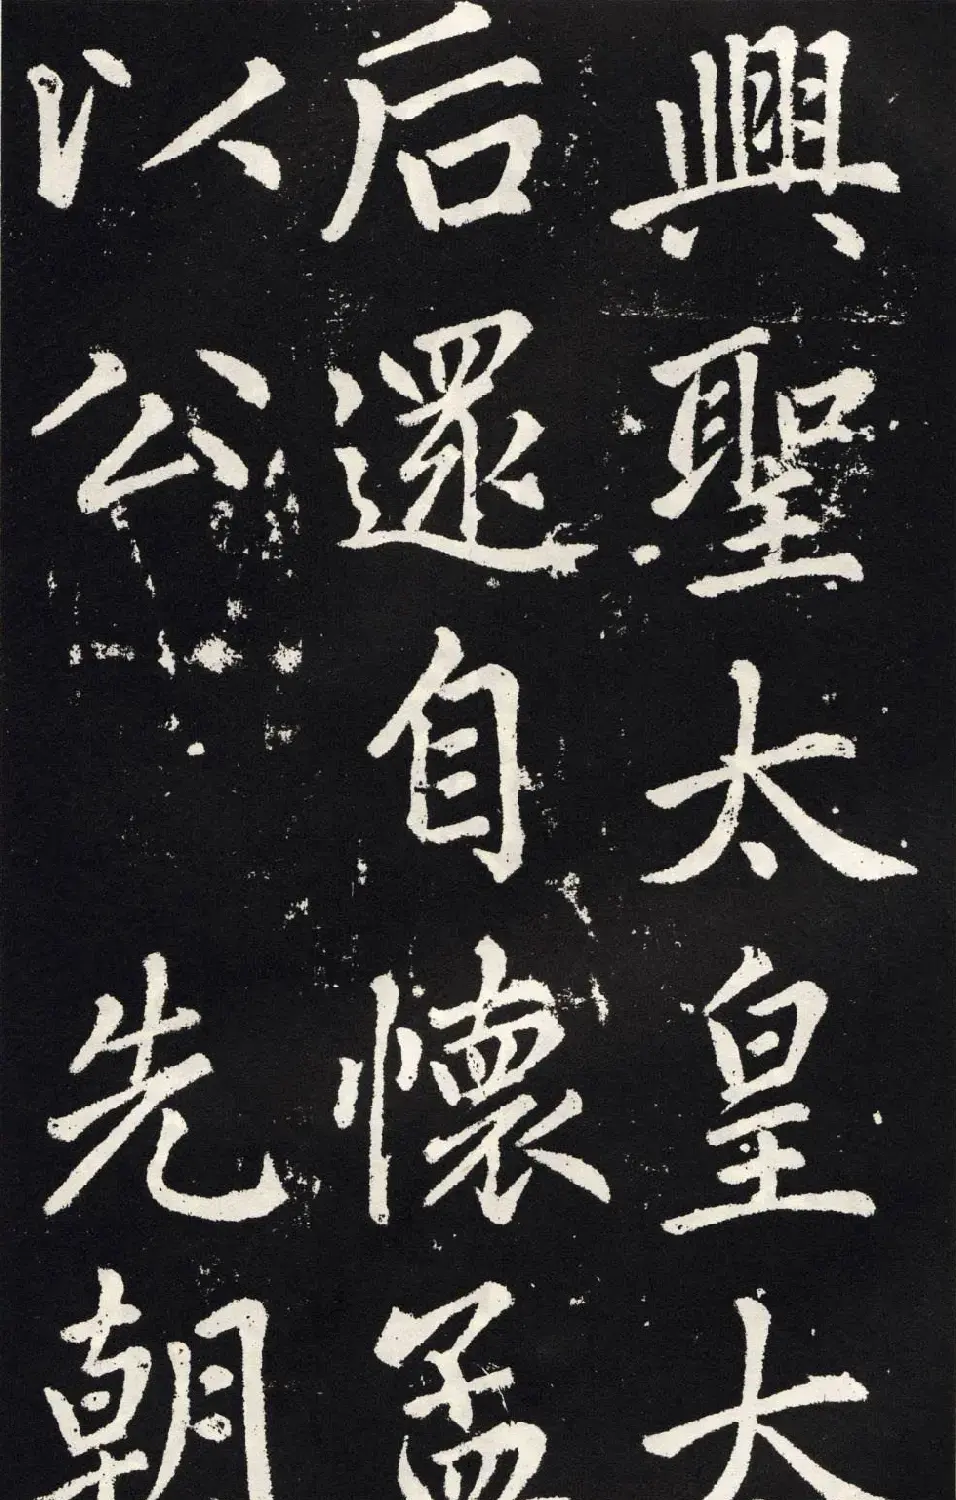 興聖太皇大
后還自懷孟
以公先朝